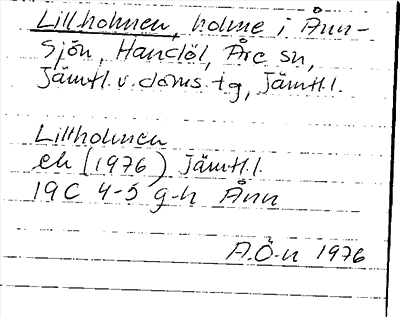 Lillholmen, holme i Ånn-
sjön, Handöl, Åre sn,
Jämtl. v. doms. tg, Jämtl. l.
Lillholmen
ek (1976) Jämtl. l.
19C 4-5 g-h Ånn
A.Ö-n 1976